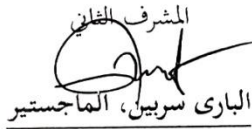 المشرف الثاني
البارى سربين، الماجستير